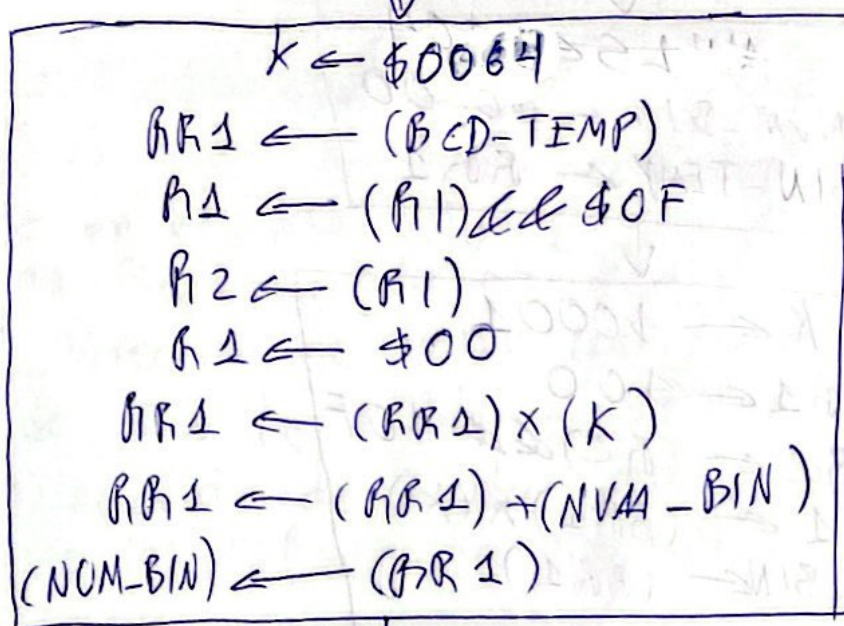 K ← $0064
RR1 ← (BCD-TEMP)
R1 ← (R1) && $0F
R2 ← (R1)
R1 ← $00
RR1 ← (RR1) × (K)
RR1 ← (RR1) + (NUM-BIN)
(NUM-BIN) ← (RR1)